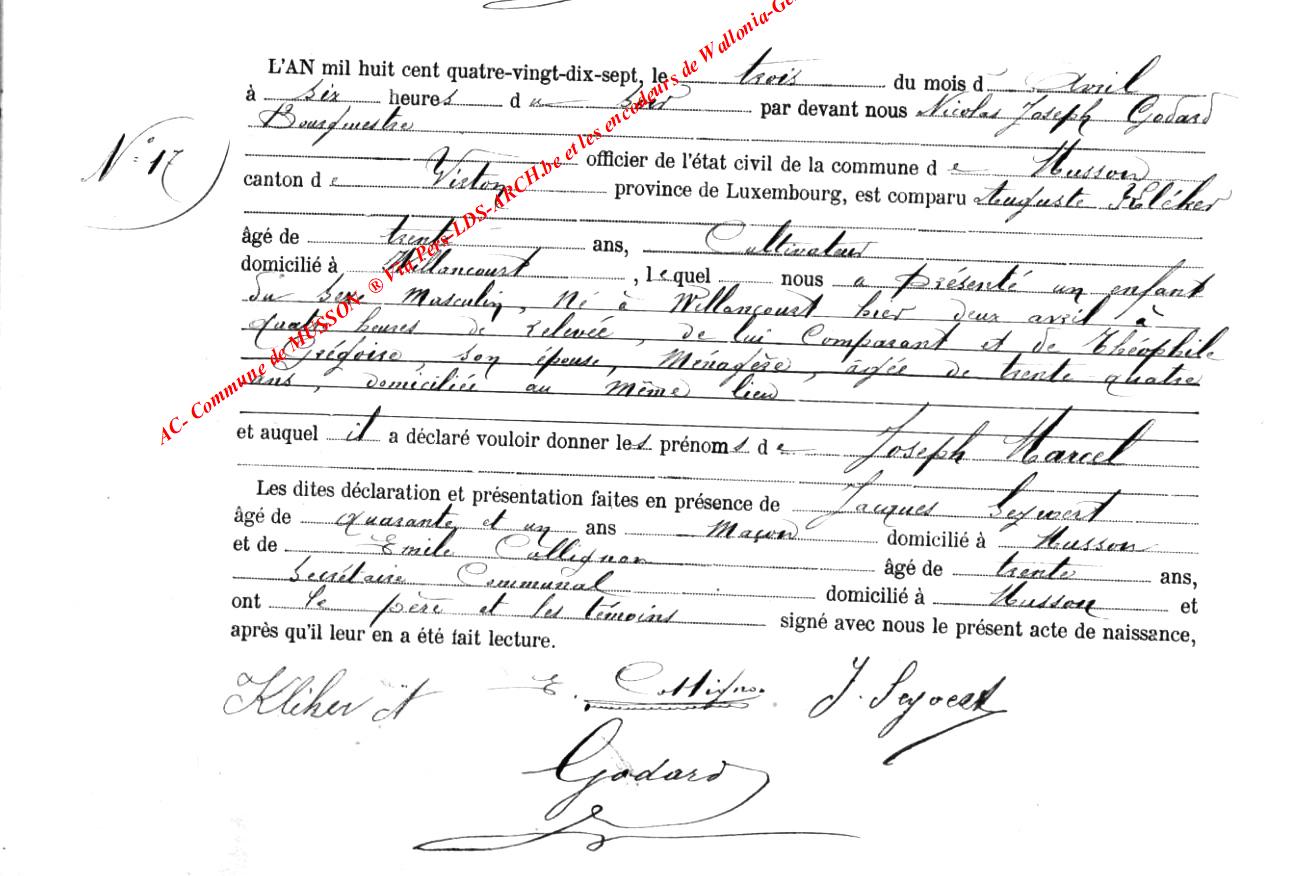 L'AN mil huit cent quatre-vingt-dix-sept, le trois du mois d' Avril
à six heures du soir par devant nous Nicolas Joseph Godard
Bourgmestre
N° 17
officier de l'état civil de la commune de Musson
canton de Virton province de Luxembourg, est comparu Auguste Kléker
âgé de trente ans, Cultivateur
domicilié à Willancourt, lequel nous a présenté un enfant
du sexe Masculin, Né à Willancourt hier deux avril à
quatre heures de relevée, de lui Comparant et de Théophile
Grégoire, son épouse, Ménagère, âgée de trente quatre
ans, domiciliée au même lieu
et auquel il a déclaré vouloir donner les prénoms de Joseph Marcel
Les dites déclaration et présentation faites en présence de Jacques Seywert
âgé de quarante et un ans Maçon domicilié à Musson
et de Emile Collignon âgé de trente ans,
Secrétaire Communal domicilié à Musson et
ont le père et les témoins signé avec nous le présent acte de naissance,
après qu'il leur en a été fait lecture.
Kliker A E. Collignon J. Seywert
Godard
AC- Commune de MUSSON- ® Via Pers-LDS-ARCH.be et les encodeurs de Wallonia-Ge